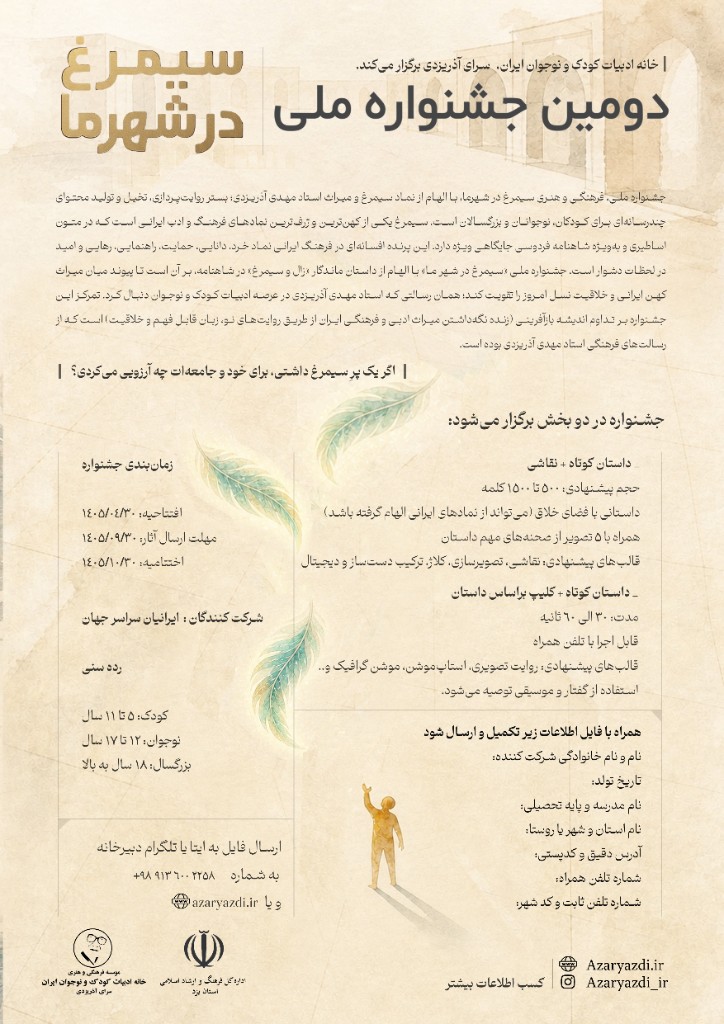 | خانه ادبیات کودک و نوجوان ایران، سرای آذریزدی برگزار می‌کند.
دومین جشنواره ملی
سیمرغ
در شهر ما
جشنواره ملی، فرهنگی و هنری سیمرغ در شهرما، با الهام از نماد سیمرغ و میراث استاد مهدی آذریزدی؛ بستر روایت‌پردازی، تخیل و تولید محتوای
چندرسانه‌ای برای کودکان، نوجوانان و بزرگسالان است. سیمرغ یکی از کهن‌ترین و ژرف‌ترین نمادهای فرهنگ و ادب ایرانی است که در متون
اساطیری و به‌ویژه شاهنامه فردوسی جایگاهی ویژه دارد. این پرنده افسانه‌ای در فرهنگ ایرانی نماد خرد، دانایی، حمایت، راهنمایی، رهایی و امید
در لحظات دشوار است. جشنواره ملی «سیمرغ در شهر ما» با الهام از داستان ماندگار «زال و سیمرغ» در شاهنامه، بر آن است تا پیوند میان میراث
کهن ایرانی و خلاقیت نسل امروز را تقویت کند؛ همان رسالتی که استاد مهدی آذریزدی در عرصه ادبیات کودک و نوجوان دنبال کرد. تمرکز این
جشنواره بر تداوم اندیشه بازآفرینی (زنده نگه‌داشتن میراث ادبی و فرهنگی ایران از طریق روایت‌های نو، زبان قابل فهم و خلاقیت) است که از
رسالت‌های فرهنگی استاد مهدی آذریزدی بوده است.
| اگر یک پر سیمرغ داشتی، برای خود و جامعه‌ات چه آرزویی می‌کردی؟ |
جشنواره در دو بخش برگزار می‌شود:
_ داستان کوتاه + نقاشی
حجم پیشنهادی: ۵۰۰ تا ۱۵۰۰ کلمه
داستانی با فضای خلاق (می‌تواند از نمادهای ایرانی الهام گرفته باشد)
همراه با ۵ تصویر از صحنه‌های مهم داستان
قالب‌های پیشنهادی: نقاشی، تصویرسازی، کلاژ، ترکیب دست‌ساز و دیجیتال
_ داستان کوتاه + کلیپ براساس داستان
مدت: ۳۰ الی ۶۰ ثانیه
قابل اجرا با تلفن همراه
قالب‌های پیشنهادی: روایت تصویری، استاپ‌موشن، موشن گرافیک و..
استفاده از گفتار و موسیقی توصیه می‌شود.
زمان‌بندی جشنواره
افتتاحیه: ۱۴۰۵/۰۴/۳۰
مهلت ارسال آثار: ۱۴۰۵/۰۹/۳۰
اختتامیه: ۱۴۰۵/۱۰/۳۰
شرکت کنندگان : ایرانیان سراسر جهان
رده سنی
کودک: ۵ تا ۱۱ سال
نوجوان: ۱۲ تا ۱۷ سال
بزرگسال: ۱۸ سال به بالا
همراه با فایل اطلاعات زیر تکمیل و ارسال شود
نام و نام خانوادگی شرکت کننده:
تاریخ تولد:
نام مدرسه و پایه تحصیلی:
نام استان و شهر یا روستا:
آدرس دقیق و کدپستی:
شماره تلفن همراه:
شماره تلفن ثابت و کد شهر:
ارسال فایل به ایتا یا تلگرام دبیرخانه
به شماره +۹۸ ۹۱۳ ۶۰۰ ۲۲۵۸
و یا azaryazdi.ir
کسب اطلاعات بیشتر
Azaryazdi.ir
Azaryazdi_ir
اداره کل فرهنگ و ارشاد اسلامی
استان یزد
موسسه فرهنگی و هنری
خانه ادبیات کودک و نوجوان ایران
سرای آذریزدی